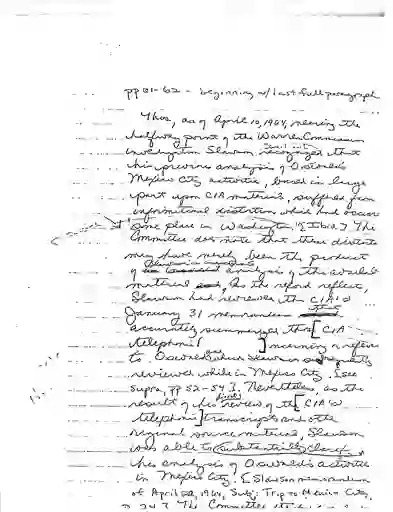 pp 61-62 - beginning w/ last full paragraph
Thus, as of April 10, 1964, nearing the
halfway point of the Warren Commission
investigation Slawson, recognized that
his previous analysis of Oswald's
Mexico City activities, based in large
part upon CIA materials, suffered from
informational distortion which had occurred
some place in Washington." [Ibid.] The
Committee does note that these distortions
may have merely been the product
of analysis of the available
material As the record reflects,
Slawson had reviewed the CIA's
January 31 memorandum
accurately summarized the [CIA
telephonic ] concerning or referring
to Oswald
reviewed while in Mexico City. [see
supra, pp 52-54]. Nevertheless, as the
result of his review of the [CIA's
telephonic] transcripts and other
original source materials, Slawson
was able to substantially clarify
his analysis of Oswald's activities
in Mexico City. [Slawson memorandum
of April 22, 1964, Subj: Trip to Mexico City,
The Committee